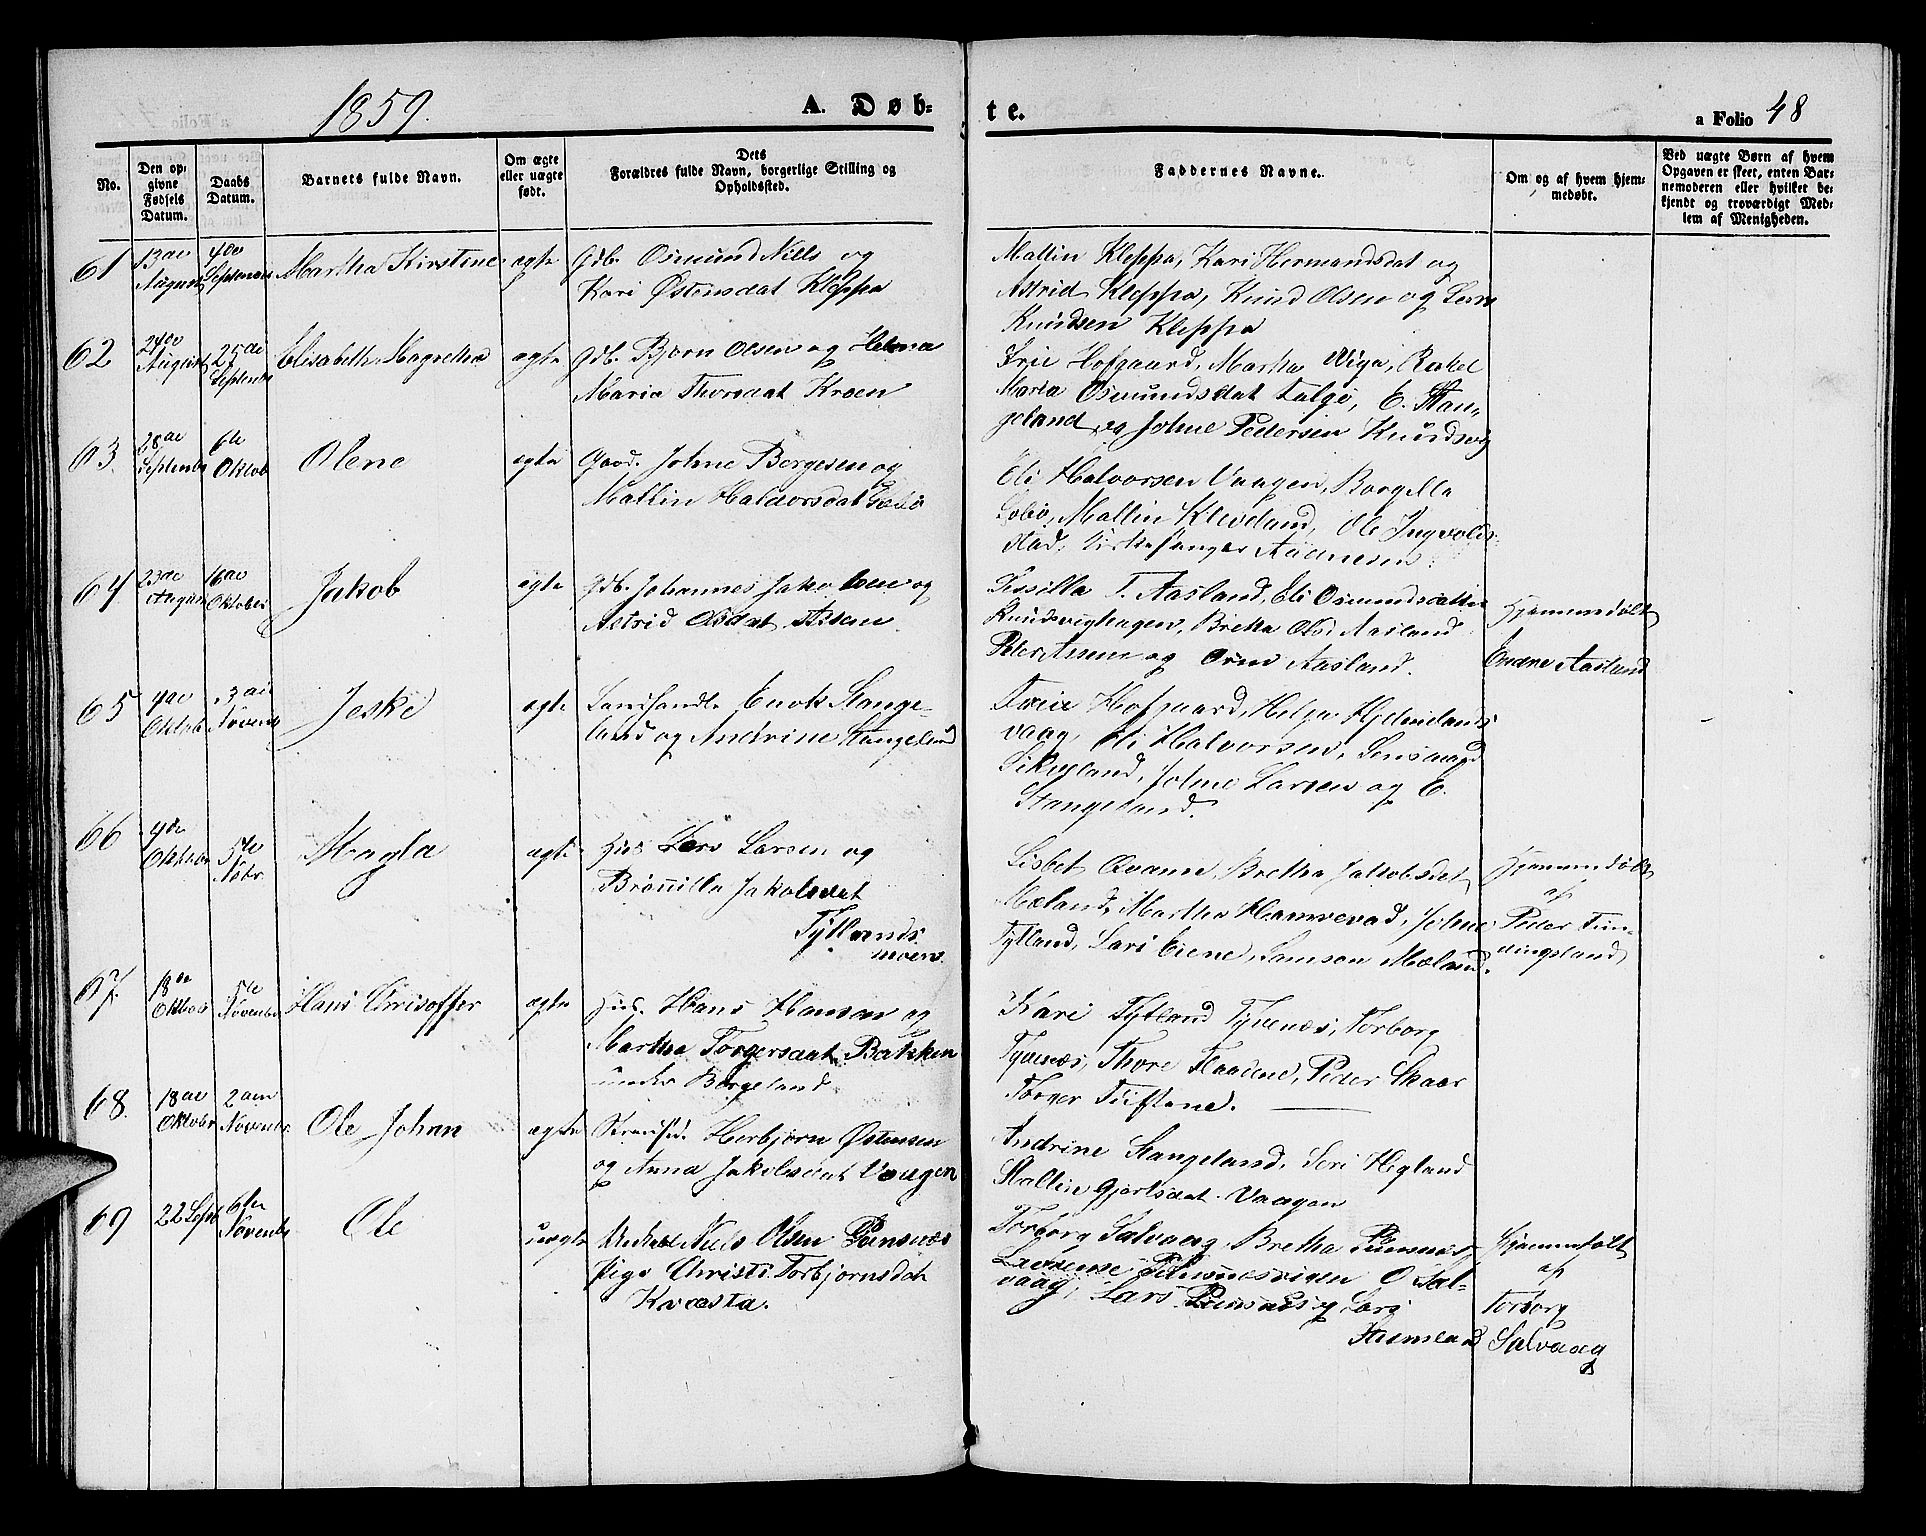 1859.
A. Døb-
te.
a Folio 48
No.
Den opgivne Fødsels Datum.
Daabs Datum.
Barnets fulde Navn.
Om ægte eller uægte født.
Dets Forældres fulde Navn, borgerlige Stilling og Opholdssted.
Faddernes Navne.
Om og af hvem hjemmedøbt.
Ved uægte Børn af hvem Opgaven er skeet, enten Barnemoderen eller hvilket bekjendt og troværdigt Medlem af Menigheden.
61
13de August
4de September
Martha Kirstine
ægte
Gdb. Osmund Nills og
Kari Østensdat Kleppa
Mallin Kleppa, Kari Hermandsdat og
Astrid Kleppa, Knud Olsen og
Knudsen Kleppa
62
24de August
25de Septembr
Elisabeth Magretha
ægte
Gdb. Bjørn Olsen og Helena
Maria Thorsdat Kroen
Hofgaard, Martha Wiga, Rakel
Maria Osmundsdat Talgø, E. Stan-
geland og Johne Pedersen Knudsvig
63.
28de Septembr
6te Oktob
Olene
ægte
Gaard. Johne Børgesen og
Mallin Halvorsdat
Eli Halvorsen Vaagen, Borgilla
Mallin Kleveland, Ole Ingvolds-
stad, Kirkesanger
64.
23de August
16de Oktober
Jakob
ægte
Gdb. Johannes Jakobsen og
Astrid Olsdat Assen
T. Aasland, Eli Osmundsdatter
Knudsvighagen, Bretha Olsd. Aasland
Peder Assen og Orm Aasland.
Hjemmedøbt
Endre Aasland
65
4de Oktob
3die Novemb
Jeske
ægte
Landhandl. Enok Stange-
land og Andrine Stangeland
Hofgaard, Helga Hjelmelands-
vaag, Eli Halvorsen,
Johne Larsen og E.
Stangeland.
66
4de Oktobr
5te Nobr.
Magla
ægte
Hus Lars Larsen og
Brønnilla Jakobsdat
Tytlands
moen.
Lisbet Bretha Jakobsdat
Mæland, Martha Johne
Tytland, Lari Eiene, Samson Mæland.
Hjemmedøbt
af
Peder Fun-
dingsland
67.
18de Oktobr
5te Novembr
Hans Chrisoffer
ægte
Hus. Hans Hansen og
Martha Torgersdat Bakken
under Børgeland
Kari Tytland Tyvenæs, Torborg
Tyvenæs, Thore Flaadene, Peder Skaar
Torger Tuftene.
68.
18de Oktobr
2den Novembr
Ole Johan
ægte
Herbjørn Østensen
og Anna Jakobsdat Vaagen
Andrine Stangeland, Seri Hegland
Mallin Gjertsdat Vaagen
69
22 Sept
6te Novembr
Ole
uægte
Ungkarl Niels Olsen Pundsnæs
Pige Christi Torbjørnsdat
Kvæsta.
Torborg Salvaag, Bretha Pundsnæs,
O Sal-
vaag, Lars Pundsnæs og Lars
Hjemmedøbt
af
Torborg
Salvaag